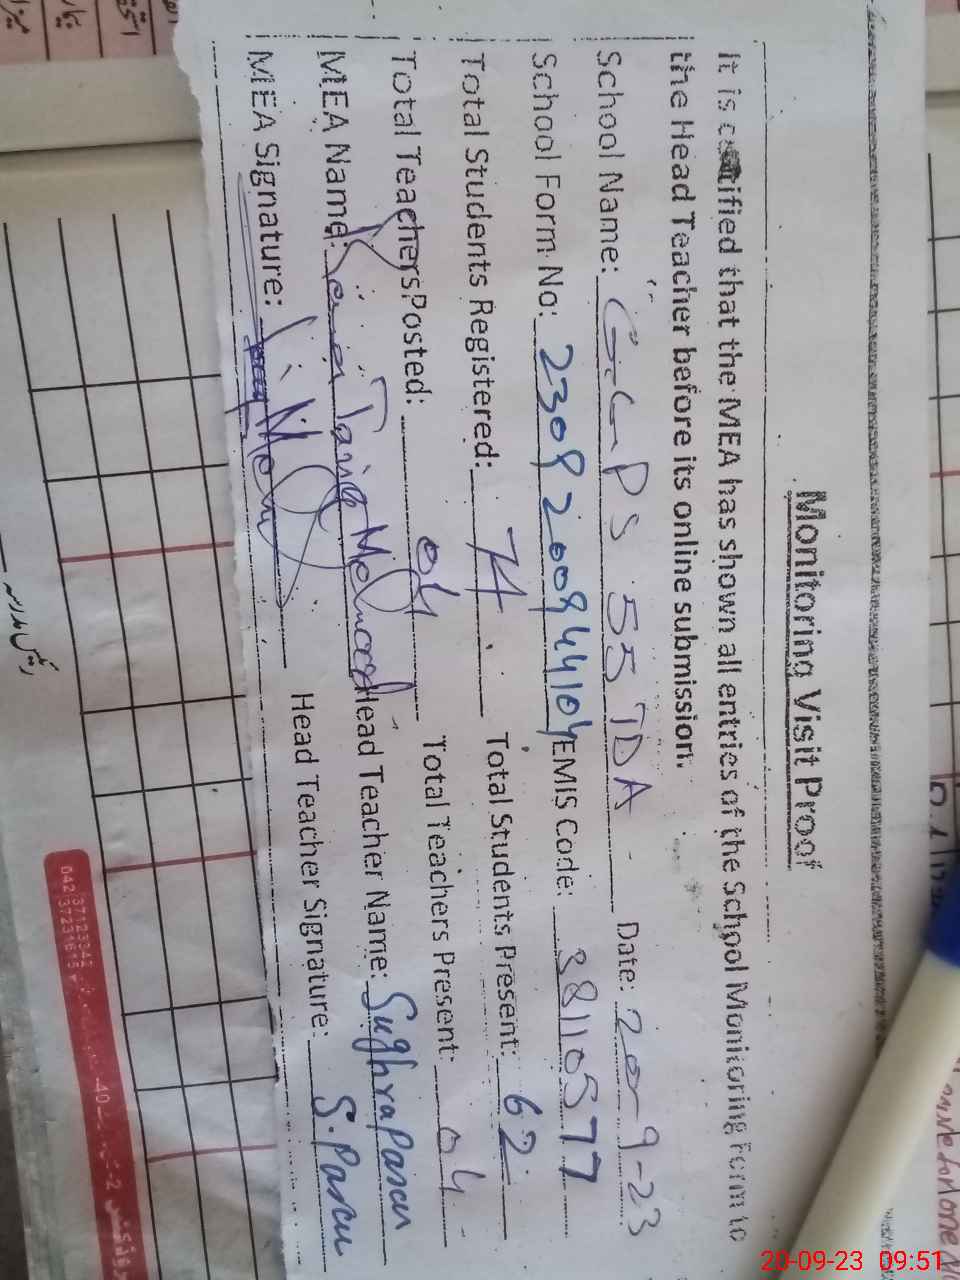 Monitoring Visit Proof
It is certified that the MEA has shown all entries of the School Monitoring Form to
the Head Teacher before its online submission.
School Name: G.G.P.S 55 TDA Date: 20-9-23
School Form No: 2309200944104 EMIS Code: 38110577
Total Students Registered: 74 Total Students Present: 62
Total Teachers Posted: 04 Total Teachers Present: 04
MEA Name: Tariq Mehmood Head Teacher Name: Sughra
MEA Signature: Head Teacher Signature: S.
042 37123342
20-09-23 09:51